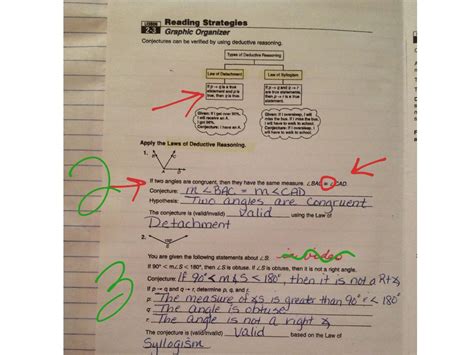 LESSON 2-3 Reading Strategies
Graphic Organizer
Conjectures can be verified by using deductive reasoning.
Types of Deductive Reasoning
Law of Detachment
Law of Syllogism
If p → q is a true
statement and p is
true, then q is true.
If p → q and q → r
are true statements,
then p → r is true.
Given: If I get over 90%,
I will receive an A.
I got 96%.
Conjecture: I have an A.
Given: If I oversleep, I will
miss the bus. If I miss the bus,
I will have to walk to school.
Conjecture: If I oversleep,
I will have to walk to school.
Apply the Laws of Deductive Reasoning.
1.
2
If two angles are congruent, then they have the same measure. ∠BAC ≅ ∠CAD.
Conjecture: m∠BAC = m∠CAD
Hypothesis: Two angles are congruent
The conjecture is (valid/invalid) valid using the Law of
Detachment
2.
3
You are given the following statements about ∠S.
If 90° < m∠S < 180°, then ∠S is obtuse. If ∠S is obtuse, then it is not a right angle.
Conjecture: If 90° < m∠S < 180°, then it is not a Rt∠
If p → q and q → r, determine p, q, and r.
p: The measure of ∠S is greater than 90° & < 180°
q: The angle is obtuse
r: The angle is not a right ∠
The conjecture is (valid/invalid) valid based on the Law of
Syllogism